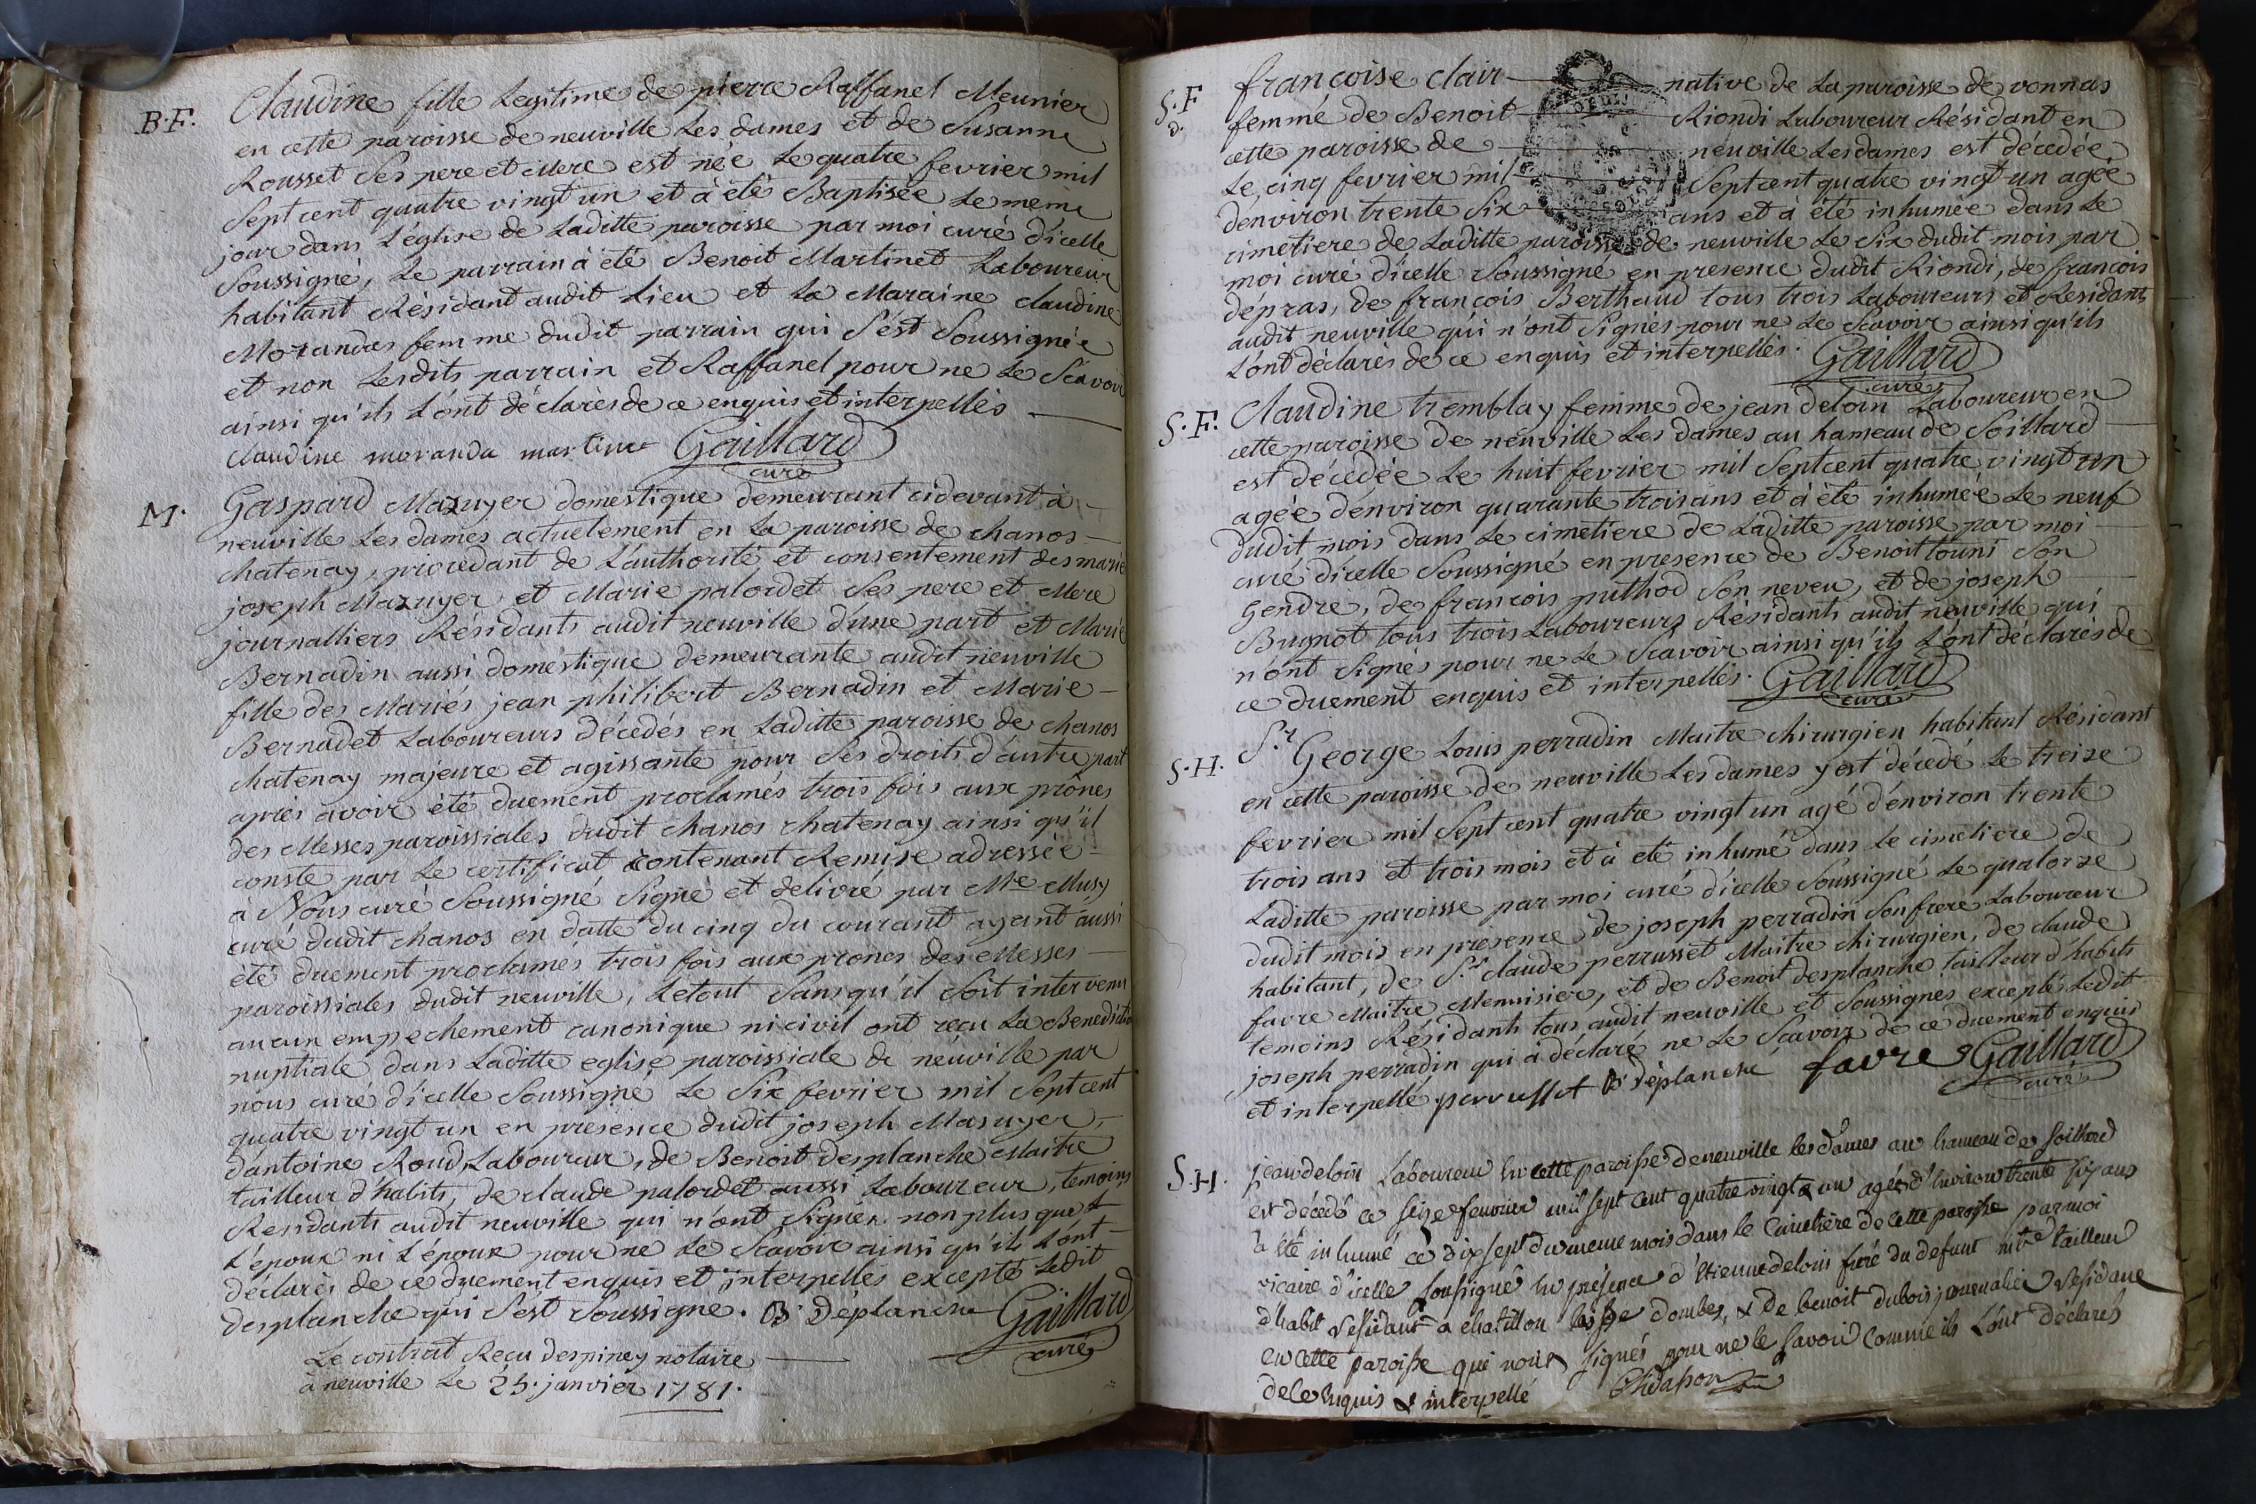 B.F. Claudine fille Legitime de pierre Raffanel Meunier
en cette paroisse de neuville Les dames et de Susanne
Rousset Ses pere et Mere est née Le quatre fevrier mil
Sept cent quatre vingt un et à été Baptisée Le meme
jour dans L'église de Laditte paroisse par moi curé d'icelle
Soussigné, Le parrain à été Benoit Martinet Laboureur
habitant Résidant audit Lieu et La Maraine claudine
Morandas femme dudit parrain qui s'est Soussignée
et non Lesdits parrain et Raffanel pour ne Le Scavoir
ainsi qu'ils L'ont déclarés de ce enquis et interpellés
claudine moranda martinet Gaillard
curé
M. Gaspard Mazuyer domestique demeurant cidevant à
neuville Les dames actuelement en La paroisse de chanos
chatenay, procedant de L'authorité et consentement des marié
joseph Mazuyer et Marie palordet Ses pere et Mere
journalliers Résidants audit neuville d'une part et Marie
Bernadin aussi doméstique demeurante audit neuville
fille des Mariés jean philibert Bernadin et Marie
Bernadet Laboureurs décedés en Laditte paroisse de chanos
chatenay majeure et agissante pour Ses droits d'autre part
aprés avoir été duement proclamés trois fois aux prônes
des Messes paroissiales dudit chanos chatenay ainsi qu'il
conste par Le certificat contenant Remise adressée
à Nous curé Soussigné Signé et delivré par Mre Musy
curé dudit chanos en datte du cinq du courant ayant aussi
été duement proclamés trois fois aux prones des Messes
paroissiales dudit neuville, Letout Sans qu'il Soit intervenu
aucun empechement canonique ni civil ont reçu La Benediction
nuptiale dans Laditte eglise paroissiale de neuville par
nous curé d'icelle Soussigné Le Six fevrier mil Sept cent
quatre vingt un en presence dudit joseph Masuyer,
d'antoine Roud Laboureur, de Benoit desplanche Maitre
tailleur d'habits, de claude palordet aussi Laboureur, temoins
Residants audit neuville qui n'ont Signés non plus que
L'epoux ni L'épouse pour ne Le Scavoir ainsi qu'ils L'ont
déclarés de ce duement enquis et interpellés excepté Ledit
desplanche qui s'est Soussigné. B. Déplanche Gaillard
curé
Le contrat Recu despiney notaire
à neuville Le 25. janvier 1781.
S.F. françoise clair native de La paroisse de vonnas
D.
femme de Benoit Riondi Laboureur Résidant en
cette paroisse de neuville Lesdames est décedée
Le cinq fevrier mil Sept cent quatre vingt un agée
d'environ trente Six ans et à été inhumée dans Le
cimetiere de Laditte paroisse de neuville Le Six dudit mois par
moi curé d'icelle Soussigné en presence dudit Riondi, de francois
dépras, de françois Berthaud tous trois Laboureurs et Residants
audit neuville qui n'ont Signés pour ne Le Scavoir ainsi qu'ils
L'ont déclarés de ce enquis et interpellés. Gaillard
curé
S.F. Claudine tremblay femme de jean deloin Laboureur en
cette paroisse de neuville Les dames au hameau de Soillard
est décedée Le huit fevrier mil Sept cent quatre vingt un
agée d'environ quarante trois ans et à été inhumée Le neuf
dudit mois dans Le cimetiere de Laditte paroisse par moi
curé d'icelle Soussigné en presence de Benoit touni Son
Gendre, de francois puthod Son neveu, et de joseph
Bugnot tous trois Laboureurs Résidants audit neuville qui
n'ont Signés pour ne Le Scavoir ainsi qu'ils L'ont déclarés de
ce duement enquis et interpellés. Gaillard
curé
S.H. Sr George Louis perradin Maitre chirurgien habitant Résidant
en cette paroisse de neuville Les dames y est décedé Le treize
fevrier mil Sept cent quatre vingt un agé d'environ trente
trois ans et trois mois et à eté inhumé dans Le cimetiere de
Laditte paroisse par moi curé d'icelle Soussigné Le quatorze
dudit mois en présence de joseph perradin Son frere Laboureur
habitant, de Sr claude perrusset Maitre chirurgien, de claude
favre Maitre Menuisier, et de Benoit desplanche tailleur d'habits
temoins Résidants tous audit neuville et Soussignés excepté Ledit
joseph perradin qui à déclaré ne Le Scavoir de ce duement enquis
et interpellé perrusset B. Déplanche favre Gaillard
curé
S.H. jean deloin Laboureur en cette paroisse de neuville les dames au hameau de Soillard
est décedé ce seize feuvrier mil sept cent quatre vingt un agée d'environ trente six ans
à été inhumé ce dix sept du meme mois dans le cimetière de cette paroisse par moi
vicaire d'icelle soussigné en présence d'étienne deloin frere du defunt mtre tailleur
d'habit residant à chatillon les dombes, & de benoit dubois journalier residant
en cette paroisse qui n'ont signés pour ne le savoir comme ils L'ont déclarés
de ce enquis & interpellé